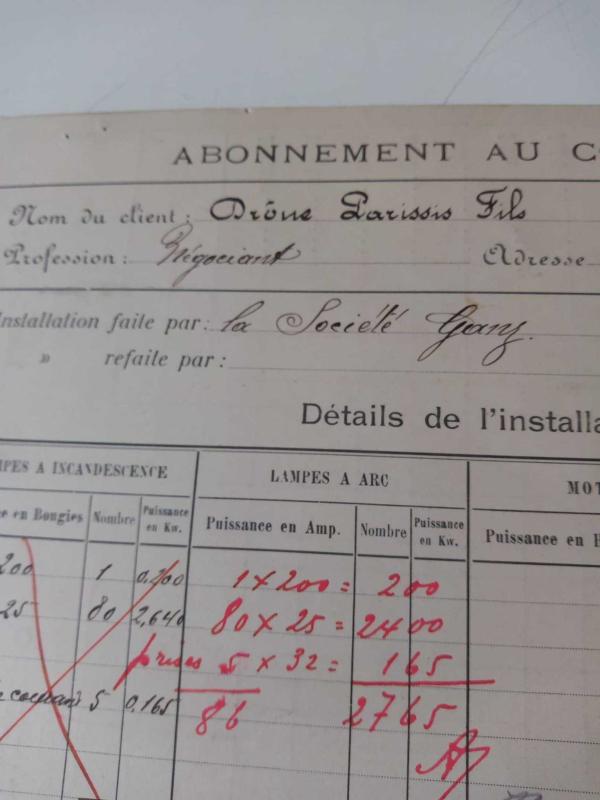 ABONNEMENT AU C
Nom du client: Drône Parissis Fils
Profession: Négociant Adresse
Installation faite par: la Société Ganz.
» refaite par:
Détails de l'install
PES A INCANDESCENCE LAMPES A ARC MOT
ce en Bougies Nombre Puissance en Kw. Puissance en Amp. Nombre Puissance en Kw. Puissance en
200 1 0,200 1 x 200 = 200
25 80 2,640 80 x 25 = 2400
prises 5 x 32 = 165
courant 5 0,165 86 2765